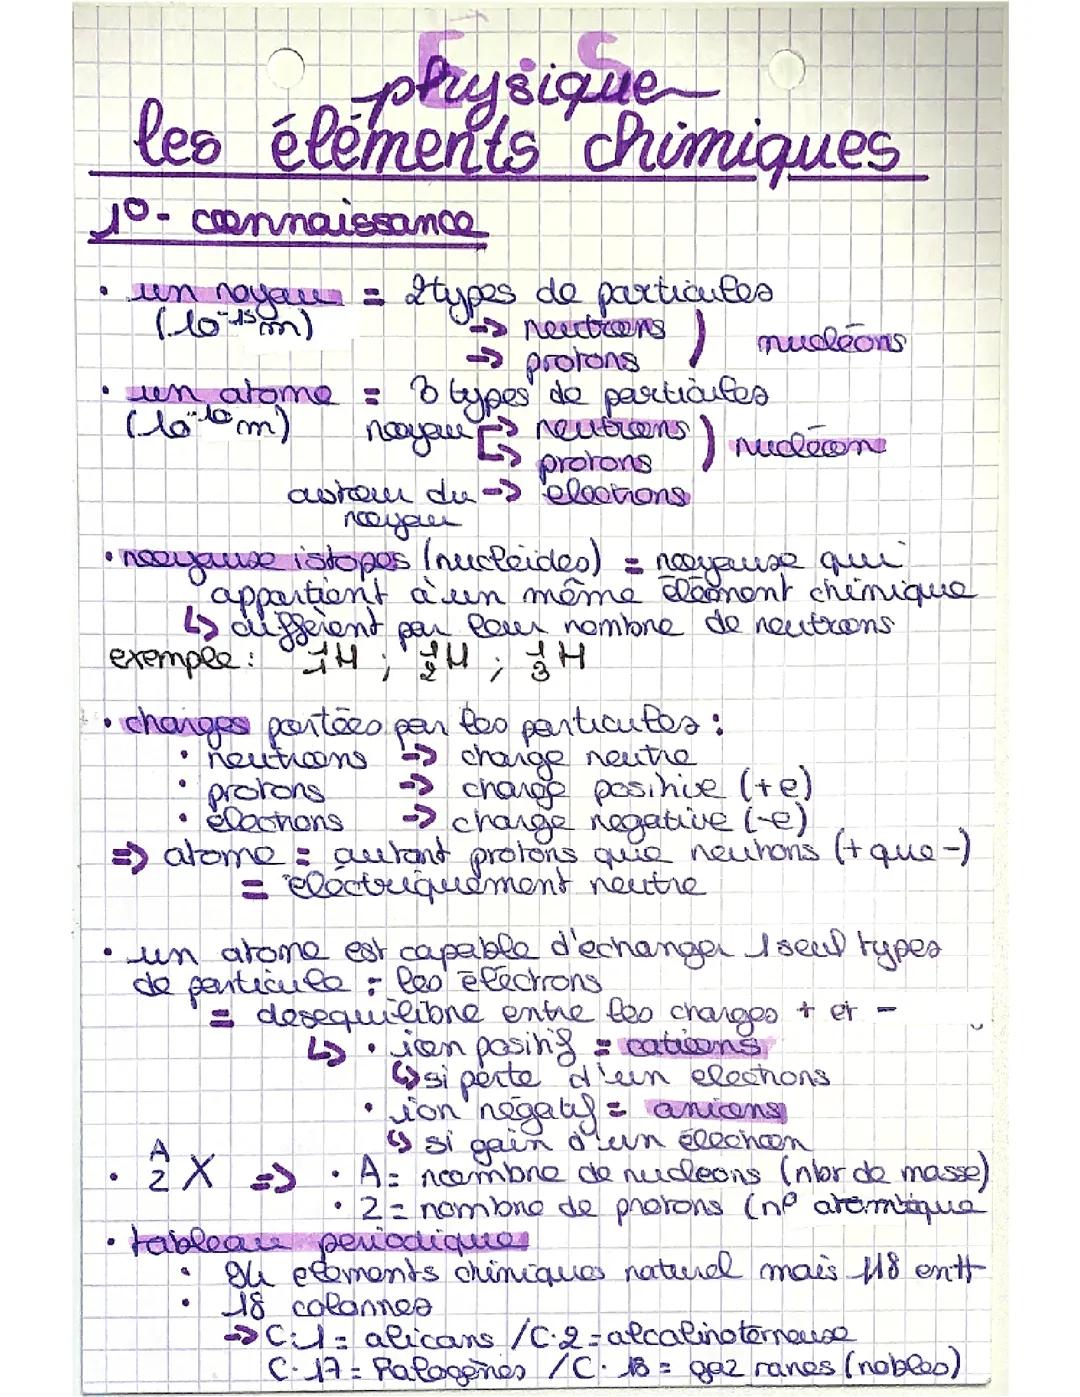 E.S
physique
les éléments chimiques
1°- connaissance
• un noyau = 2 types de particules
(10⁻¹⁵m) → neutrons ) nucléons
→ protons
• un atome = 3 types de particules
(10⁻¹⁰m) noyau → neutrons ) nucléon
↳ protons
autour du → électrons
noyau
• noyause istopes (nucléides) = noyause qui
appartient à un même élément chimique
↳ diffèrent par leur nombre de neutrons
exemple : ¹₁H ; ¹₂H ; ¹₃H
• charges portées par les particules :
• neutrons → charge neutre
• protons → charge positive (+e)
• électrons → charge negative (-e)
⇒ atome = autant protons que neutrons (+ que -)
= électriquement neutre
• un atome est capable d'echanger 1 seul types
de particule = les électrons
= desequilibre entre les charges + et -
↳ • ion positif = cations
↳ si perte d'un electrons
• ion négatif = anions
↳ si gain d'un électron
• A
2 X ⇒ • A = nombre de nucleons (nbr de masse)
• 2 = nombre de protons (n° atomique
• tableau periodique
• 94 elements chimiques naturel mais 118 entt
• 18 colonnes
→ C.1 = alicans / C.2 = alcalinoterreuse
C.17 = halogènes / C.18 = gaz rares (nobles)